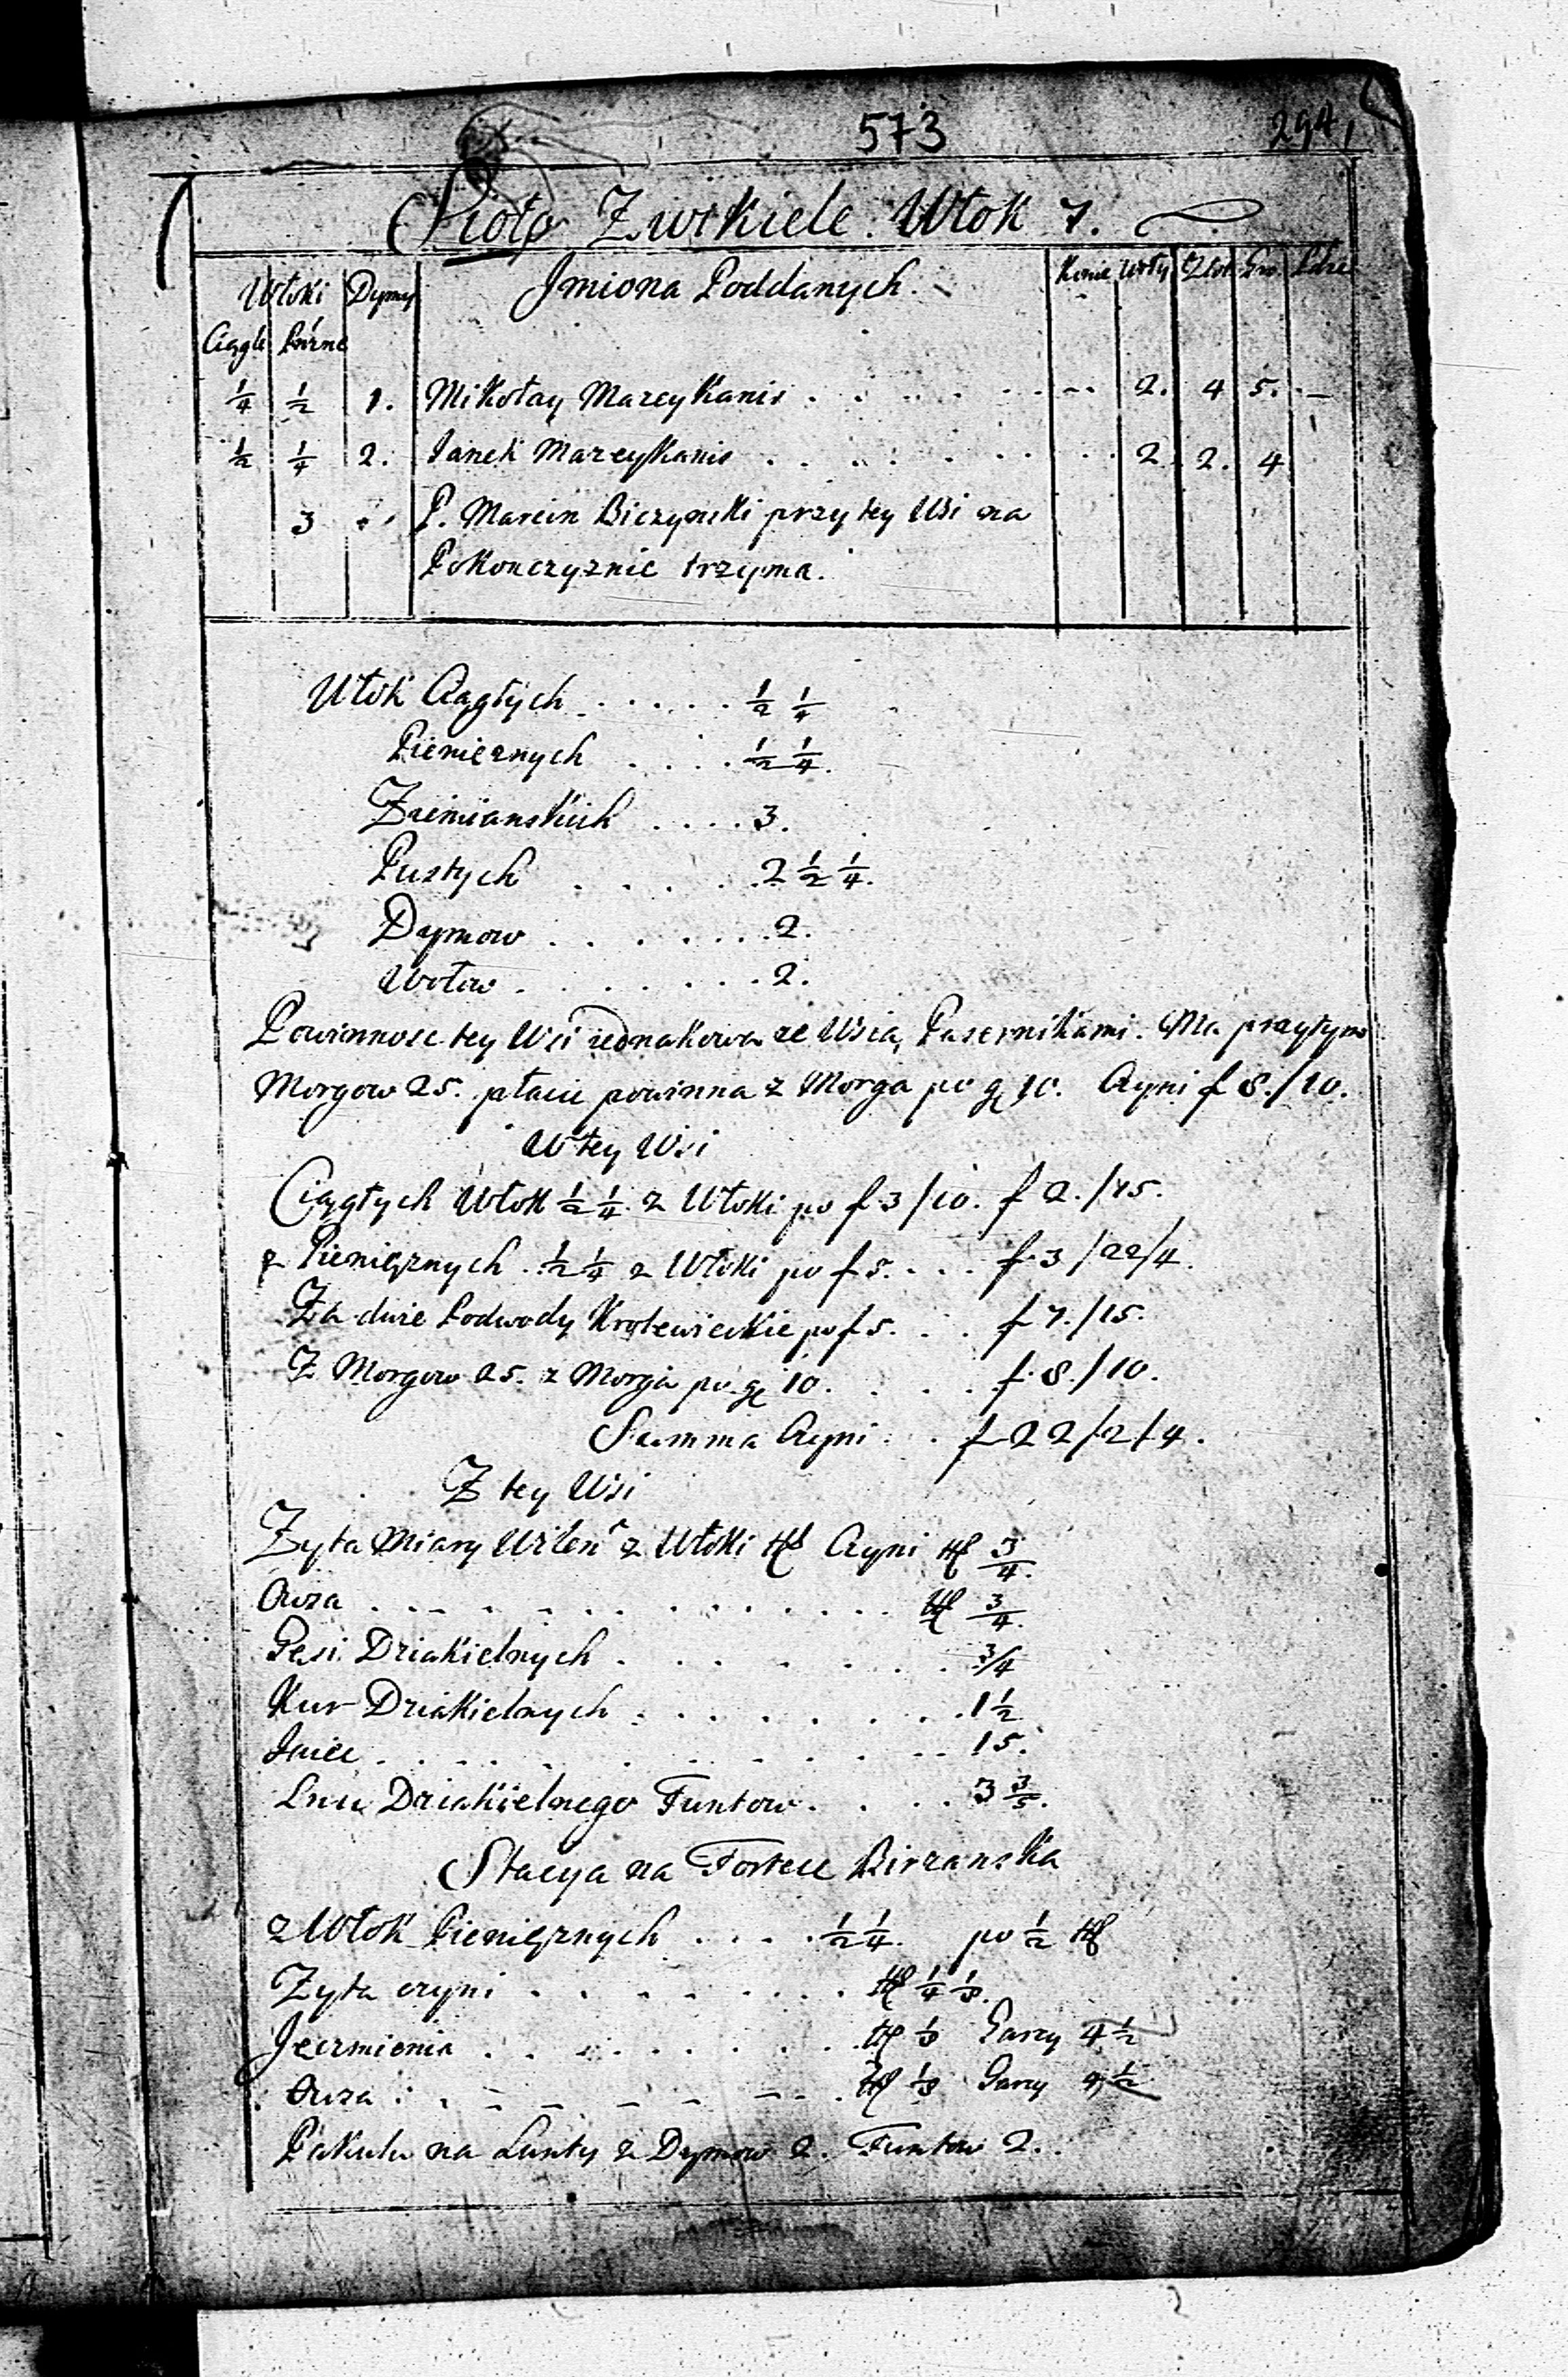 573 294
Sioło Zwikiele. Włok 7.
Włoki Dymy Jmiona Poddanych. Konie Woły Złot Gro
Ciągłe
1/4 1/2 1. Mikołay Mareykanis . . . . . 2. 4 5. –
1/2 1/4 2. Janek Mareykanis . . . . . 2 2. 4
3 P. Marcin Biczynski przy tey Wsi na
Pokonczyznie trzyma.
Włok Ciągłych . . . . . 1/2 1/4
Pienieznych . . . . 1/2 1/4.
Ziemianskich . . . . 3.
Pustych . . . . . 2 1/2 1/4.
Dymow . . . . . . 2.
Wołow . . . . . . . 2.
Powinnosc tey Wsi iednakowa ze Wsią Pasernikami. Ma przytym
Morgow 25. płacic powinna z Morga po g 10. Czyni f 8./10.
W tey Wsi
Ciągłych Włok 1/2 1/4. z Włoki po f 3/10. f 2./15.
z Pienięznych . 1/2 1/4 z Włoki po f 5. . . . f 3/22/4.
Za dwie Podwody Krolewieckie po f 5. . . f 7./15.
Z Morgow 25. z Morga po g 10. . . . f. 8./10.
Summa Czyni . . f 22/2/4.
Z tey Wsi
Zyta Miary Wilen z Włoki Czyni 3/4.
Owsa . . . . . . . . . . . . 3/4.
Gesi Dziakielnych . . . . . . . 3/4
Kur Dziakielnych . . . . . . . . 1 1/2
Jaiec . . . . . . . . . . . 15.
Lnu Dziakielnego Funtow . . . . 3 3/5.
Stacya na Fortece Birzanska
z Włok Pienięznych . . . . 1/2 1/4. po 1/2
Zyta czyni . . . . . . . . 1/4 1/8.
Jeczmienia . . . . . . . . 1/8 Garcy 4 1/2
Owsa . . . . . . . . . 1/8 Garcy 4 1/2
Pakula na Lunty z Dymow 2. Funtow 2. .